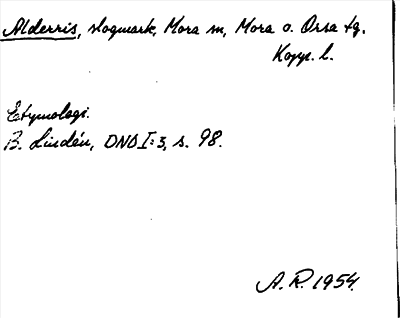 Alderris, skogmark, Mora sn, Mora o. Orsa tg.
Kopp. l.
Etymologi.
B. Lindén, DNO I:3, s. 98.
A. R. 1954.